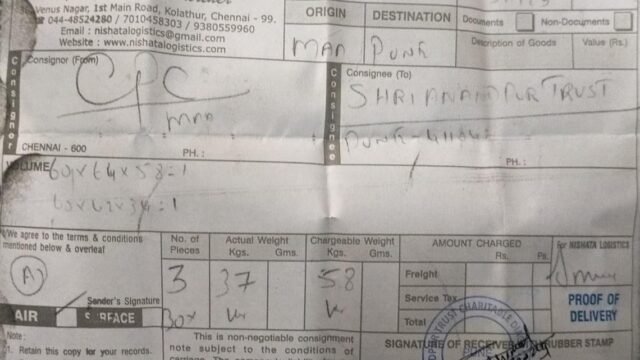 Venus Nagar, 1st Main Road, Kolathur, Chennai - 99.
044-48524280 / 7010458303 / 9380559960
Email : nishatalogistics@gmail.com
Website : www.nishatalogistics.com
ORIGIN
DESTINATION
Documents
Non-Documents
MAA
PUNE
Description of Goods
Value (Rs.)
Consignor
Consignor (From)
CPC
MAA
CHENNAI - 600
PH. :
Consignee
Consignee (To)
SHRI ANANDPUR TRUST
PUNE
PH. :
VOLUME
60x64x58=1
We agree to the terms & conditions
mentioned below & overleaf
A
Sender's Signature
AIR
SURFACE
No. of Pieces
Actual Weight
Kgs. Gms.
Chargeable Weight
Kgs. Gms.
3
37
58
Box
AMOUNT CHARGED
Rs. Ps.
Freight
Service Tax
Total
For NISHATA LOGISTICS
PROOF OF
DELIVERY
TRUST CHARITABLE
Note :
1. Retain this copy for your records.
This is non-negotiable consignment
note subject to the conditions of
SIGNATURE OF RECEIVER
RUBBER STAMP